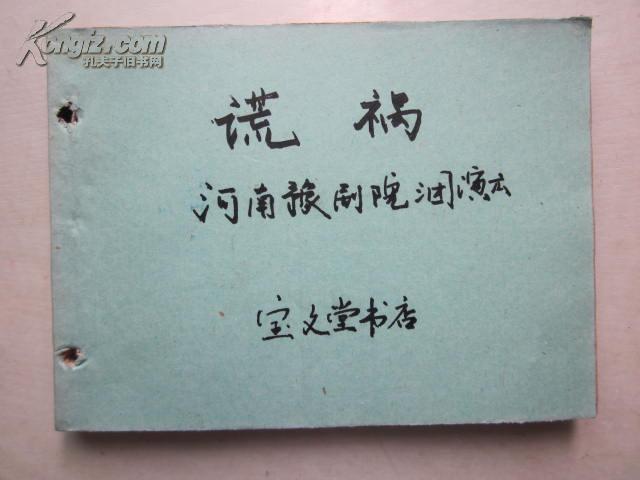 Kongfz.com
孔夫子旧书网
谎祸
河南豫剧院三团演出
宝文堂书店